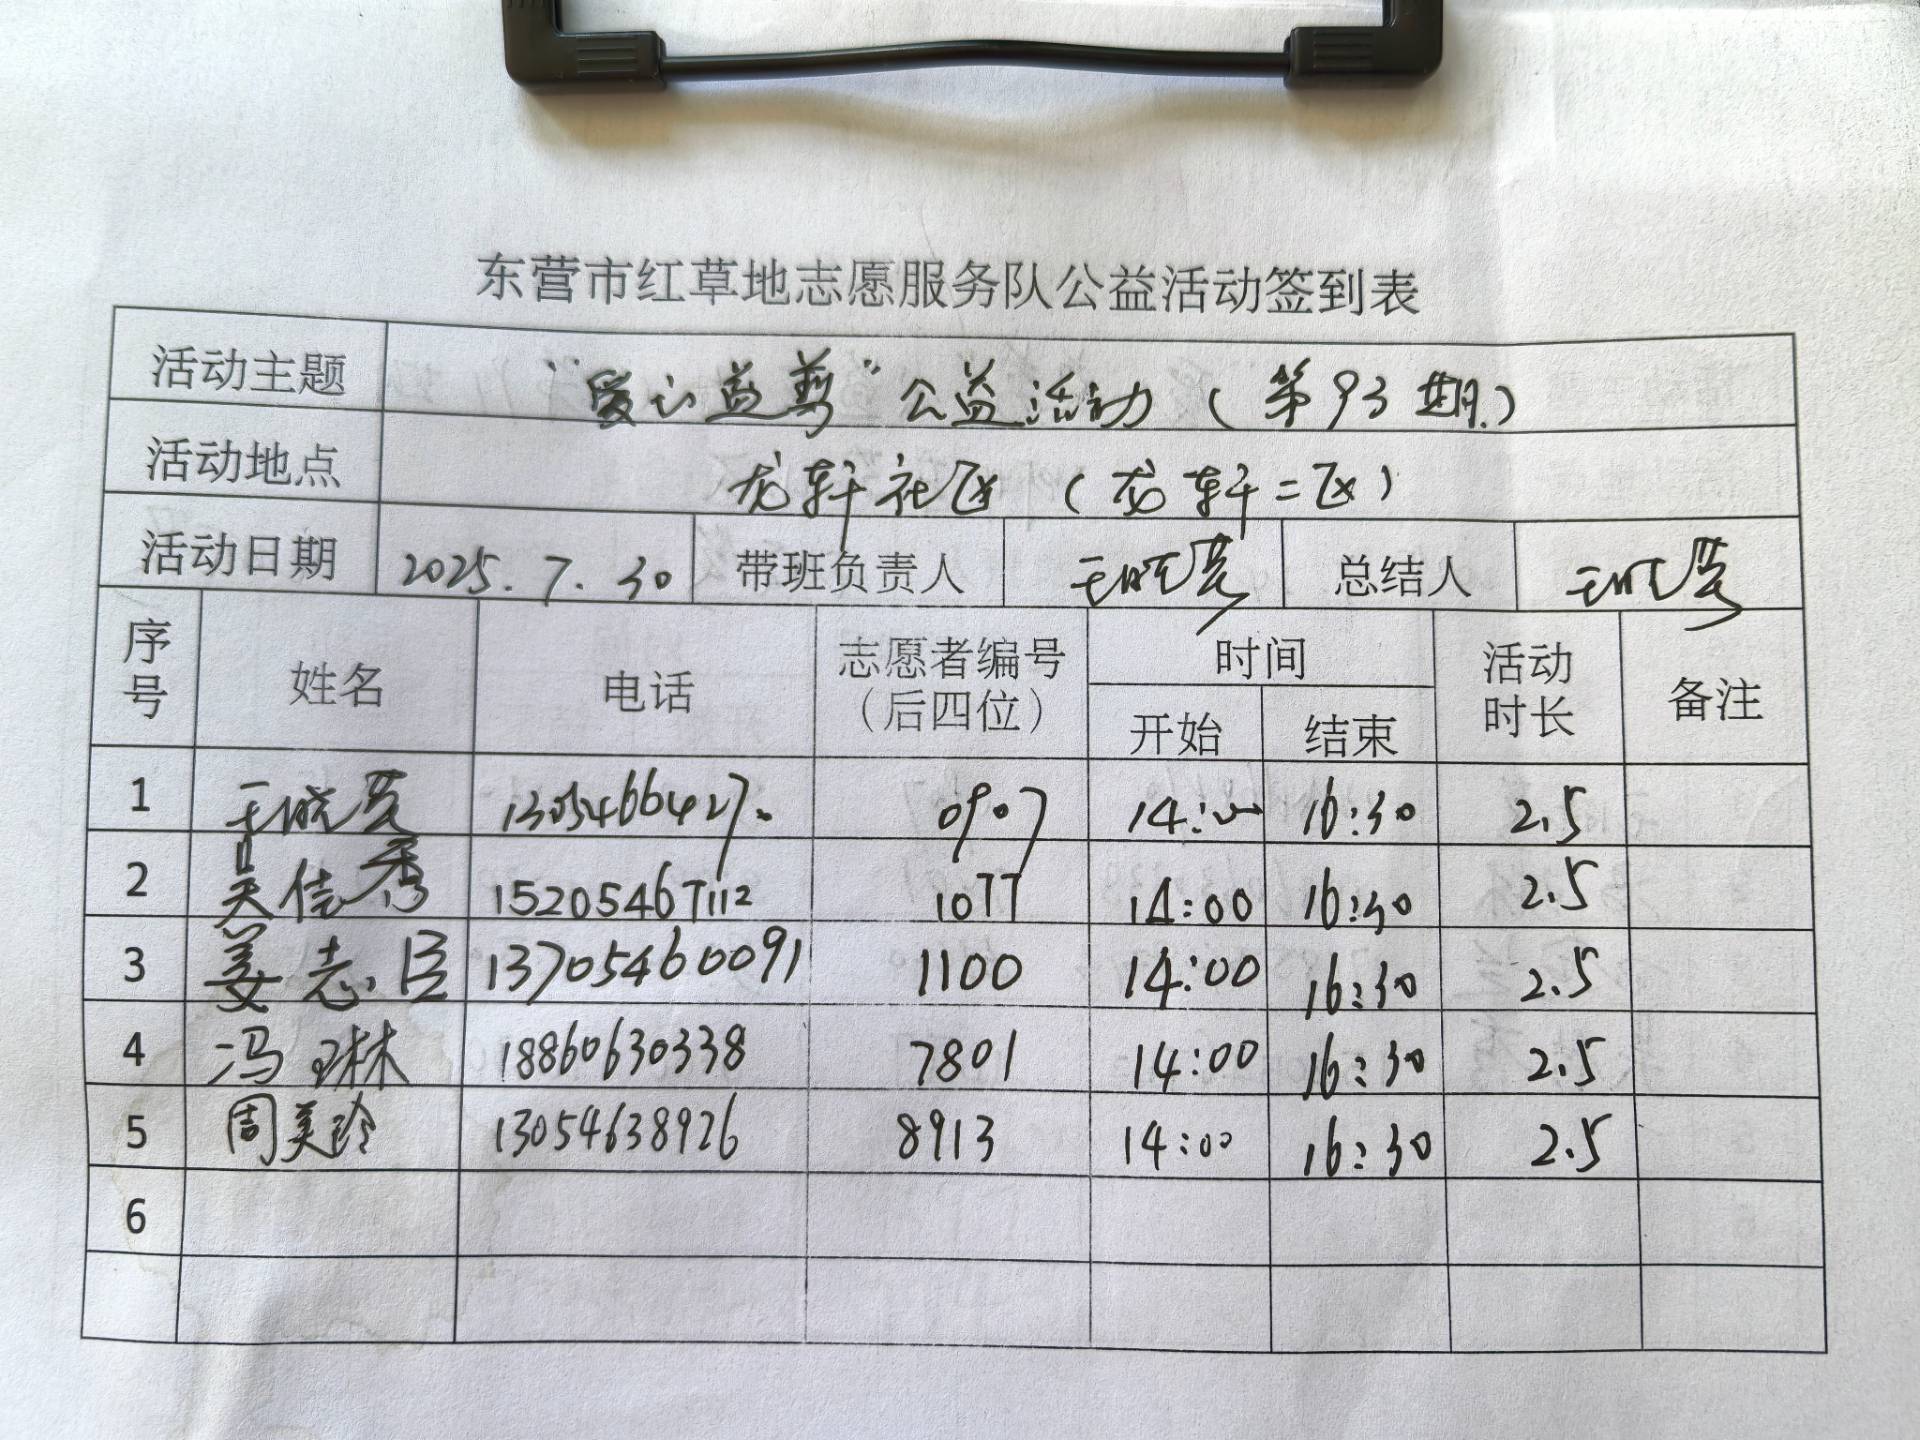 东营市红草地志愿服务队公益活动签到表
活动主题 “爱心益剪”公益活动（第93期）
活动地点 龙轩社区（龙轩二区）
活动日期 2025.7.30 带班负责人 总结人
序号 姓名 电话 志愿者编号（后四位） 时间 开始 结束 活动时长 备注
1 0907 14:00 16:30 2.5
2 吴佳秀 15205467112 1077 14:00 16:30 2.5
3 姜志臣 13705460091 1100 14:00 16:30 2.5
4 冯琳 18860630338 7801 14:00 16:30 2.5
5 周美玲 13054638926 8913 14:00 16:30 2.5
6